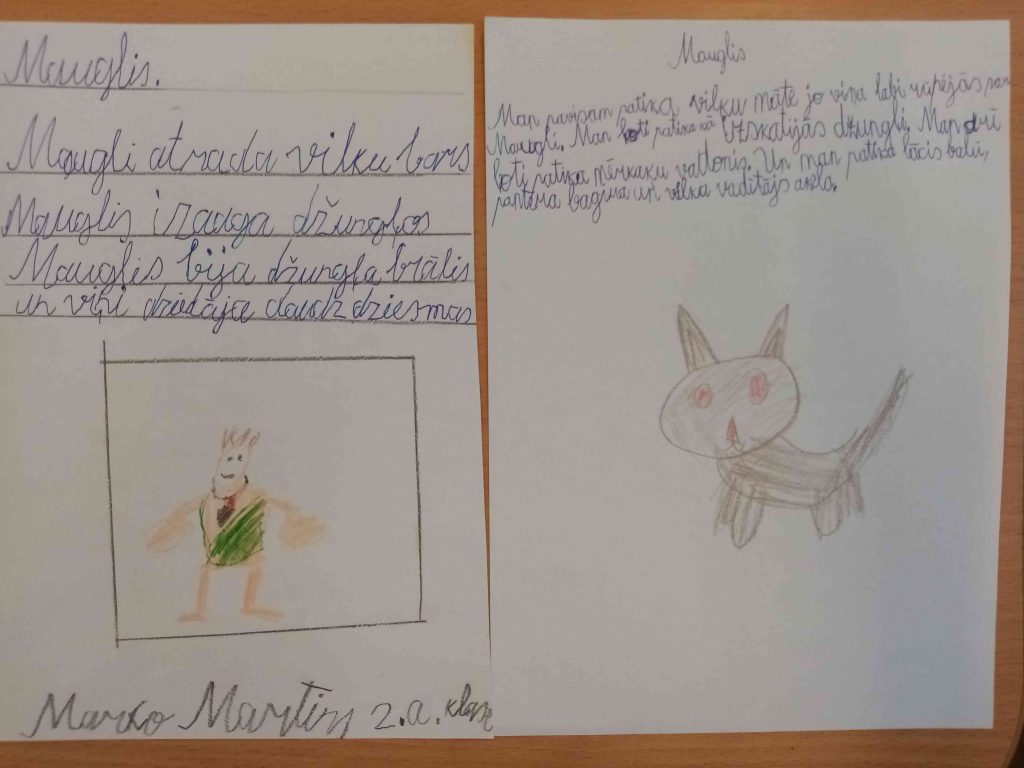 Mauglis.
Maugli atrada vilku bars
Mauglis izauga džunglos
Mauglis bija džungļa brālis
un viņi dziedāja daudz dziesmas
Marko Martins 2.a. klase
Mauglis
Man pavisam patika vilku māte jo viņa labi rūpējās par
Maugli. Man ļoti patika kā Izskatijās džungli. Man arī
ļoti patika mērkaķu valdonis. Un man patika lācis balū,
pantēra bagira un vilku vadītājs akela.